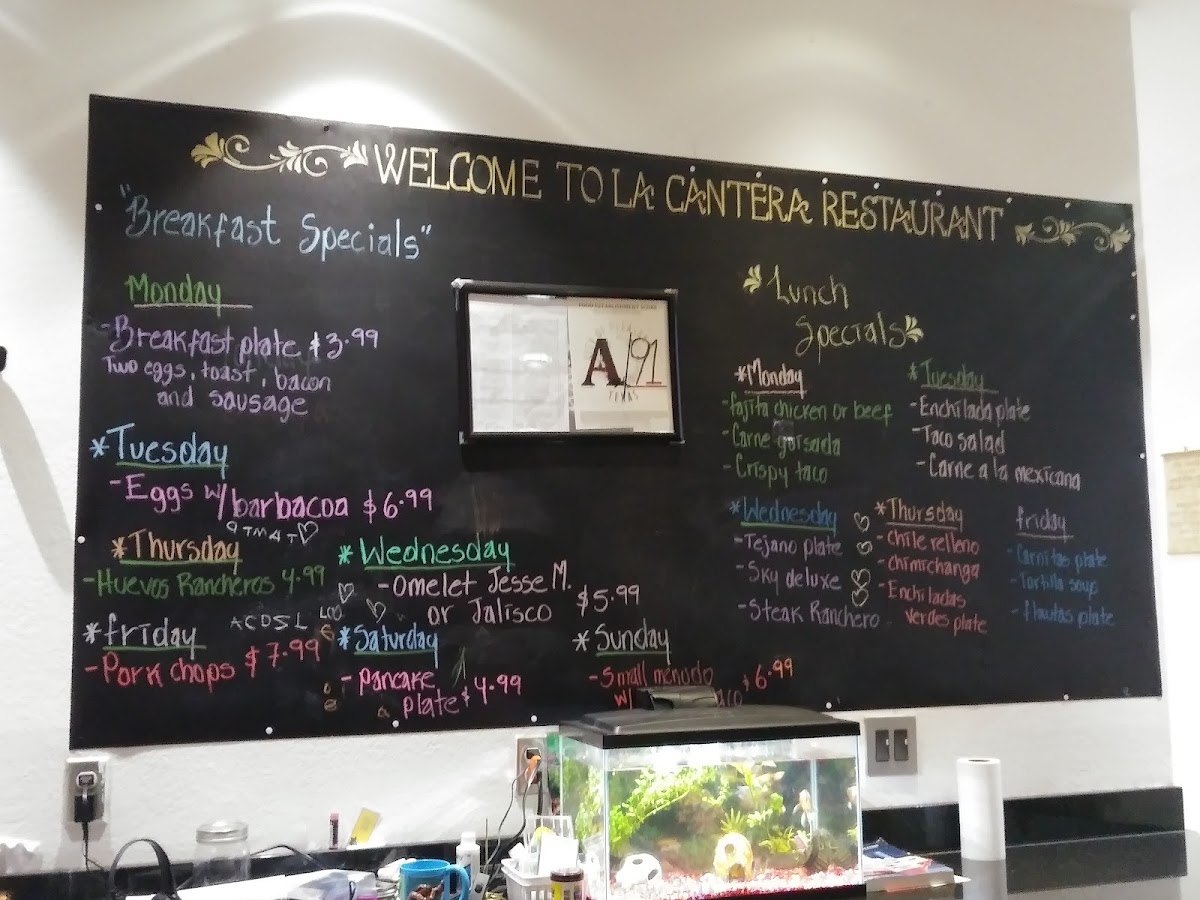 WELCOME TO LA CANTERA RESTAURANT
"Breakfast Specials"
Monday
-Breakfast plate $3.99
Two eggs, toast, bacon
and sausage
*Tuesday
-Eggs w/barbacoa $6.99
*Thursday
-Huevos Rancheros 4.99
*Wednesday
-Omelet Jesse M.
or Jalisco $5.99
*friday
-Pork chops $7.99
*Saturday
-pancake
plate $4.99
*Sunday
-Small menudo
w/ $6.99
A/91
TEXAS
Lunch
Specials
*Monday
-fajita chicken or beef
-Carne gaisada
-Crispy taco
*Tuesday
-Enchilada plate
-Taco salad
-Carne a la mexicana
*Wednesday
-Tejano plate
-Sky deluxe
-Steak Ranchero
*Thursday
-chile relleno
-chimichanga
-Enchiladas
verdes plate
friday
-Carnitas plate
-Tortilla soup
-flautas plate